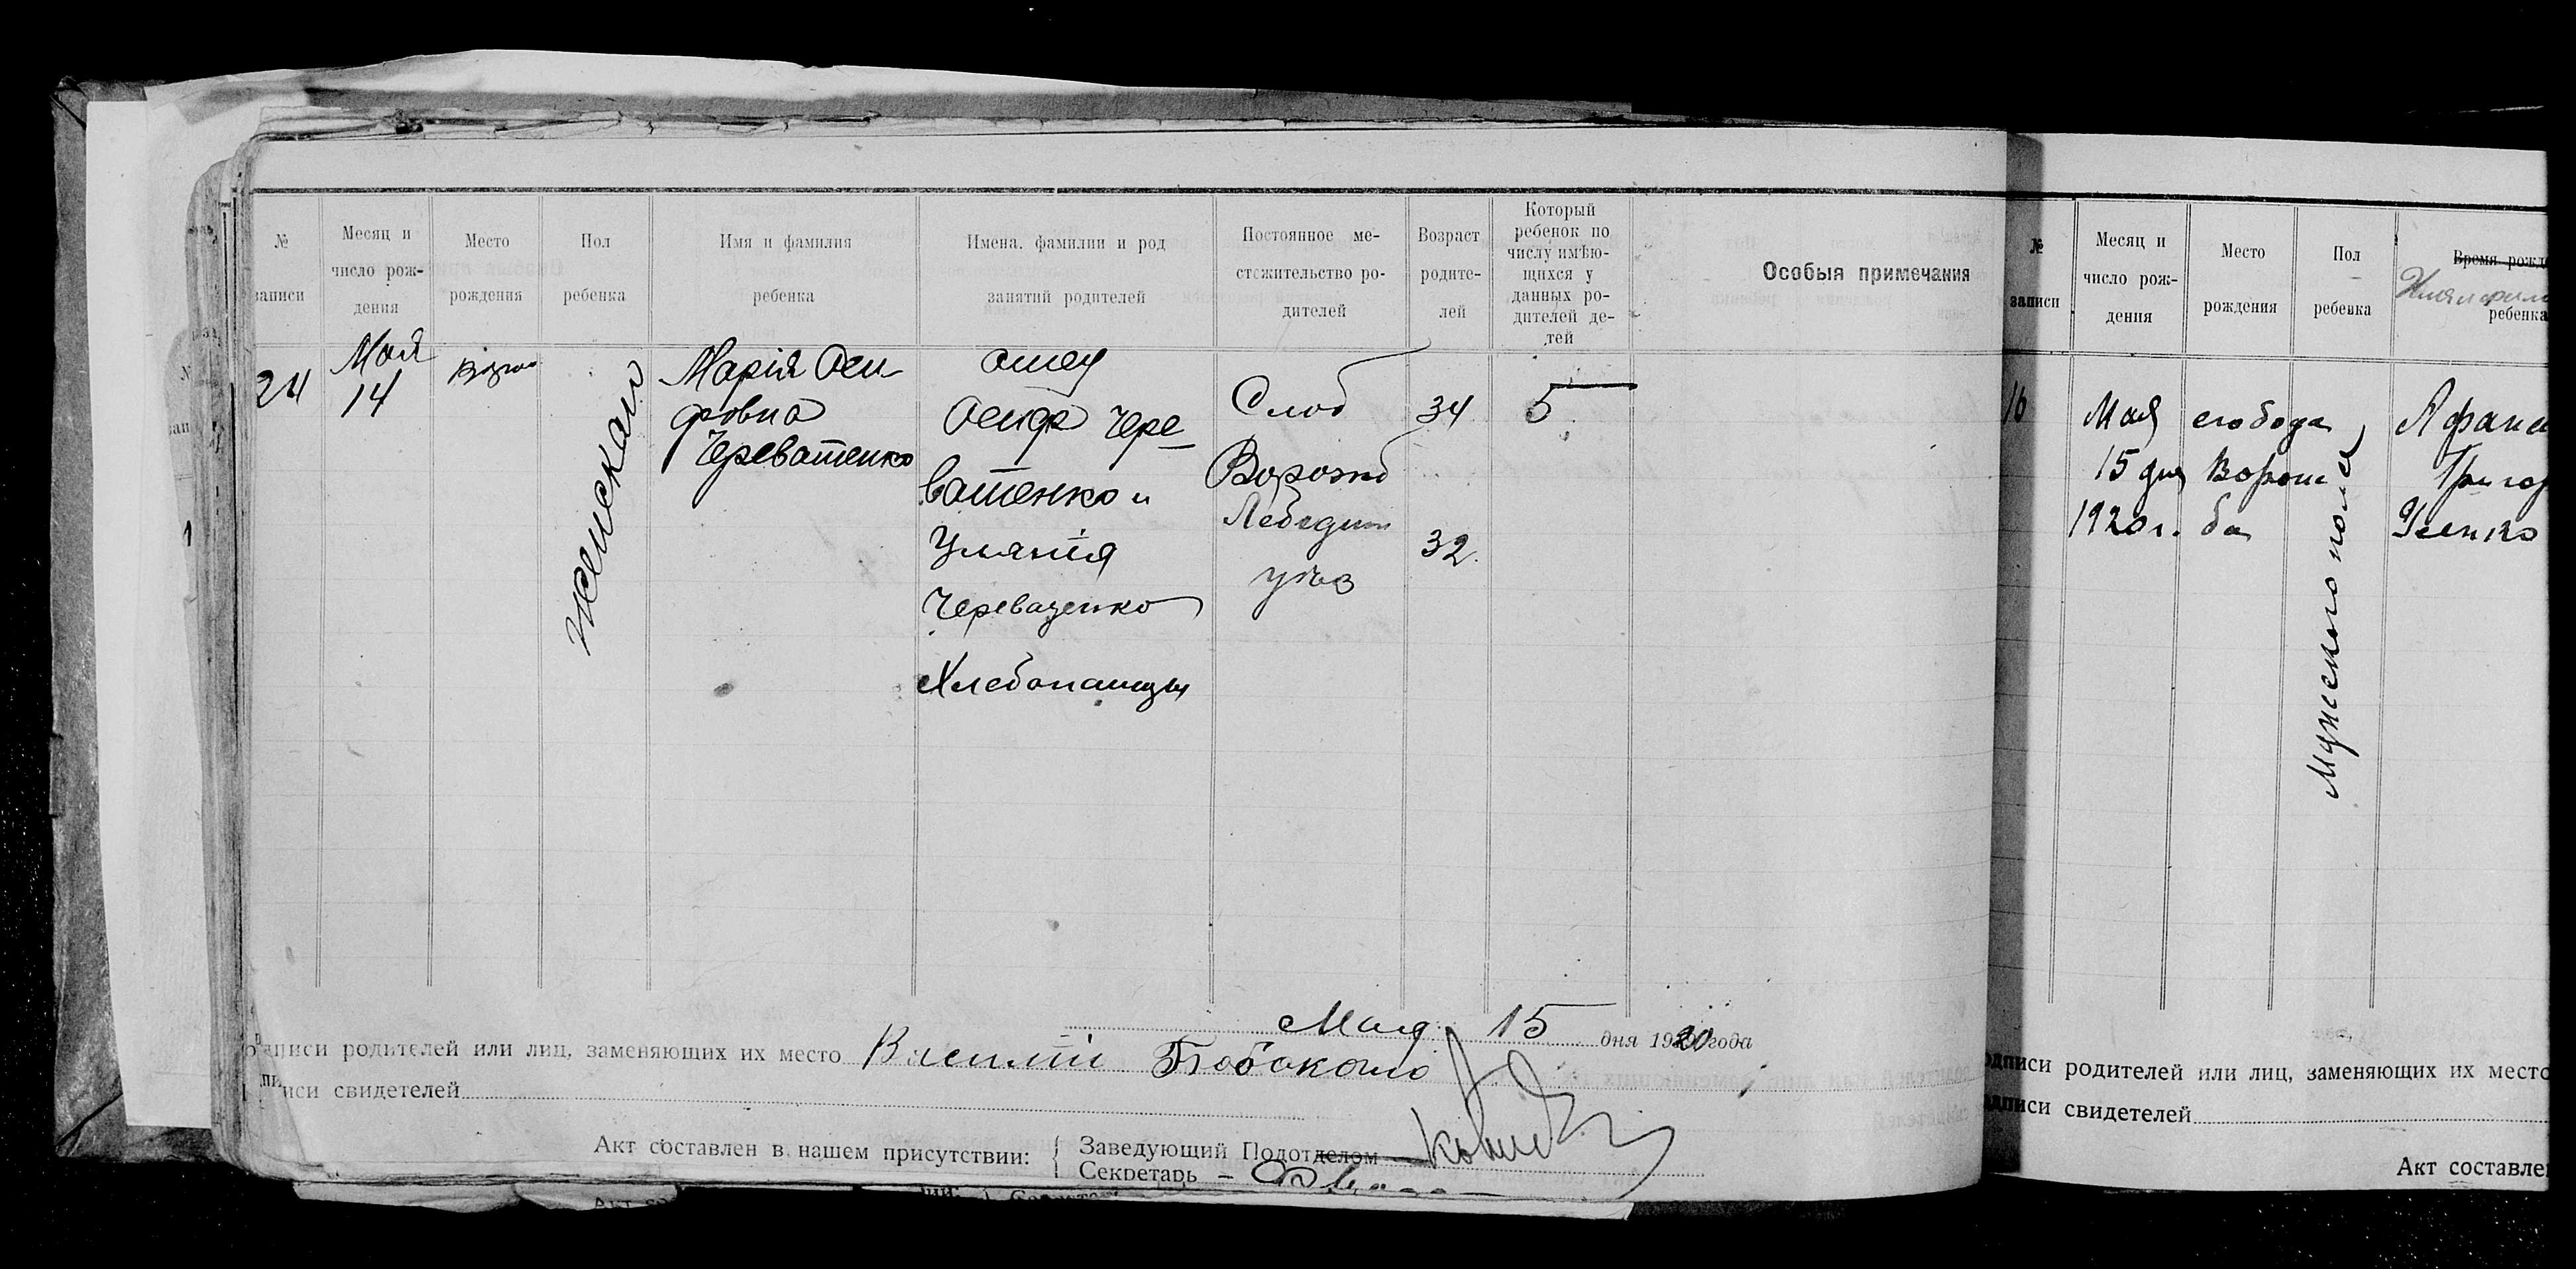 № записи
Месяц и число рождения
Место рождения
Пол ребенка
Имя и фамилия ребенка
Имена, фамилии и род занятий родителей
Постоянное местожительство родителей
Возраст родителей
Который ребенок по числу имѣющихся у данных родителей детей
Особыя примечания
24
Мая
14
Женскаго
Марія Оси
фовна
Череватенко
отец
Осиф Чере
ватенко и
Улянія
Череваценко
Хлебопашцы
Слоб
Ворожб
Лебедин
уѣз
34
32
5
Мая 15 дня 1920 года
записи родителей или лиц, заменяющих их место Василій
писи свидетелей
Акт составлен в нашем присутствии:
Заведующий Подотделом
Секретарь
№ записи
Месяц и число рождения
Место рождения
Пол ребенка
Время рожд
ребенка
16
Мая
15 дня
1920 г.
слобода
Ворож
ба
Мужского пола
Афанас
Григор
Усенко
одписи родителей или лиц, заменяющих их место
одписи свидетелей
Акт составле